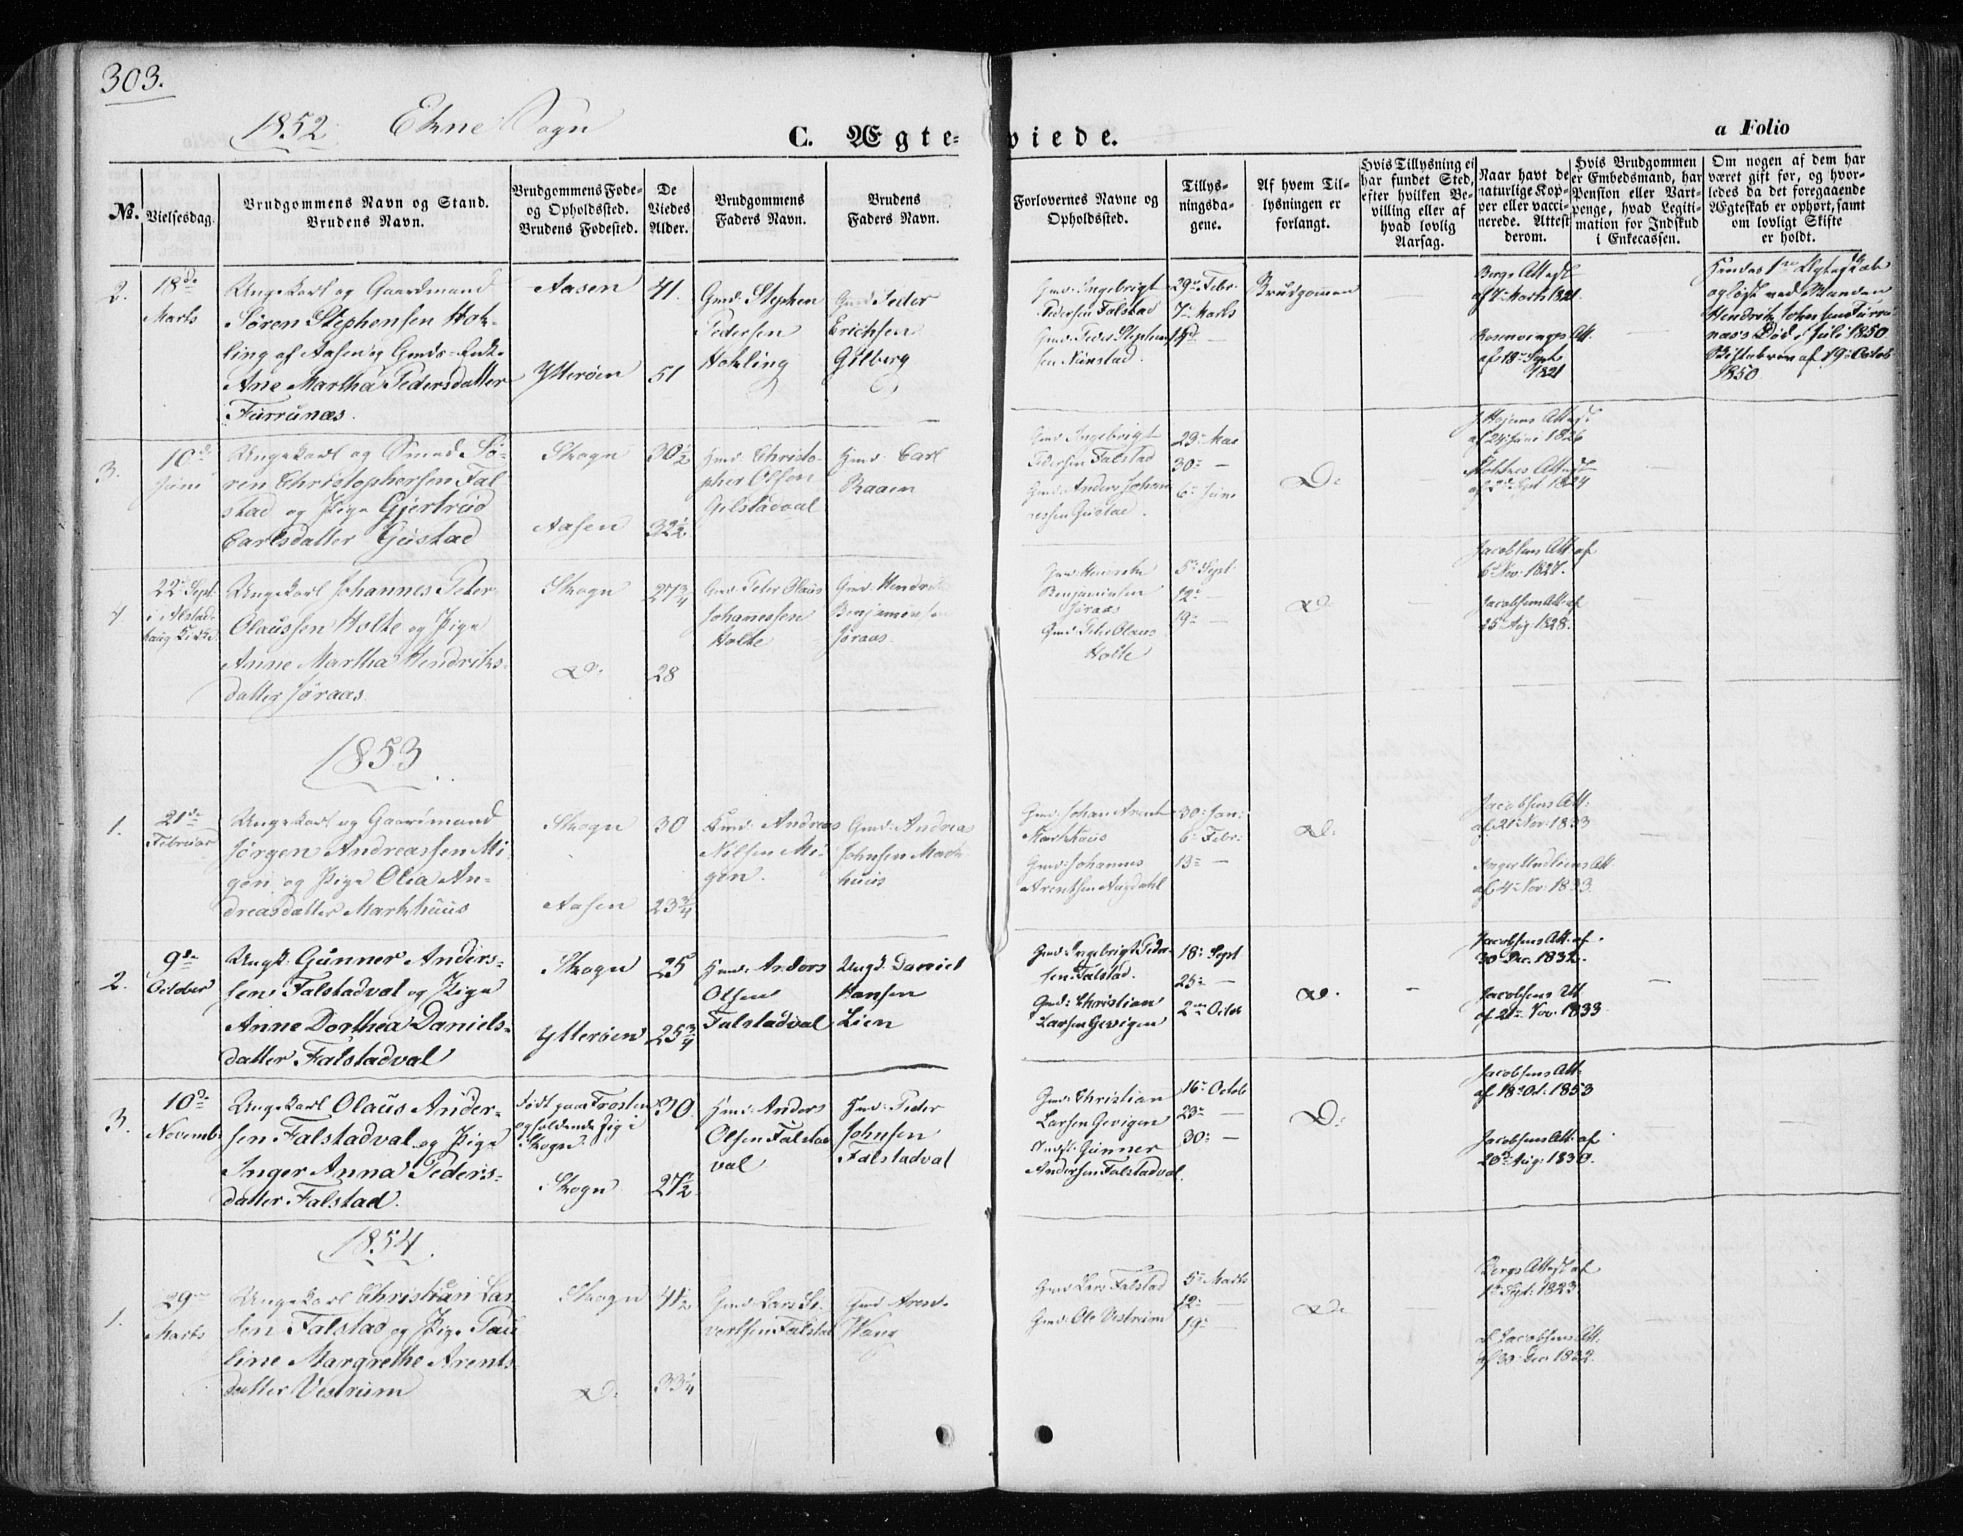 303.
1852 Ekne Sogn
C. Ægteviede.
a Folio
No.
Vielsesdag.
Brudgommens Navn og Stand.
Brudens Navn.
Brudgommens Føde-
og Opholdssted.
Brudens Fødested.
De
Viedes
Alder.
Brudgommens
Faders Navn.
Brudens
Faders Navn.
Forlovernes Navne og
Opholdssted.
Tillys-
ningsda-
gene.
Af hvem Til-
lysningen er
forlangt.
Hvis Tillysning ei
har fundet Sted,
efter hvilken Be-
villing eller af
hvad lovlig
Aarsag.
Naar havt de
naturlige Kop-
per eller vacci-
nerede. Attest
derom.
Hvis Brudgommen
er Embedsmand, har
Pension eller Vart-
penge, hvad Legiti-
mation for Indskud
i Enkecassen.
Om nogen af dem har
været gift før, og hvor-
ledes da det foregaaende
Ægteskab er ophørt, samt
om lovligt Skifte
er holdt.
2.
18de
Marts
Ungekarl og Gaardmand
Søren Stephensen Hok-
ling af Aasen og Gmds Enke
Ane Martha Pedersdatter
Furrunæs.
Aasen
Ytterøen
41.
51
Gmd. Stephen
Pedersen
Hokling
Gmd Peder
Erichsen
Gilberg
Gmd. Ingebrigt
Pedersen Falstad
Gmd. Peder Stephen-
sen Nünstad.
29de Febr.
7de Marts
14de —
Brudgommen
Borgs Attest
af 7de Marts 1821.
Rosenvinges Att.
af 18de Sept
1821
Hendes 1ste Ægteskab
opløst ved Manden
Hendrik Johnsen Furru-
næs's Død i Juli 1850
Skiftebrev af 19de Octob
1850
3.
10de
Juni
Ungekarl og Smed Sø-
ren Christophersen Fal
stad og Pige Gjertrud
Carlsdatter Gustad
Skogn
Aasen
30½
32½
Hmd. Christo-
pher Olsen
Gilstadval
Hmd. Carl
Raaen
Gmd Ingebrigt
Pedersen Falstad
Gmd: Anders Johan
nessen Gustad.
23de Mai
30de —
6te Juni
Do
af 24de Juni 1826
af 2de Sept 1824
4.
22de Sept.
i Alstad-
haug Kirke
Ungekarl Johannes Peter
Olaussen Holte og Pige
Anne Martha Hendriks-
datter Jøraas.
Skogn
Do.
27¾
28
Gmd Peter Olaus
Johannessen
Holte
Gmd. Hendrik
Benjaminsen
Jøraas.
Gmd. Hendrik
Benjaminsen
Jøraas
Gmd. Peter Olaus
Holte
5te Sept.
12te —
19de —
Do
Jacobsens Att. af
6te Nov. 1827.
Jacobsens Att. af
25de Aug 1828.
1853
1.
21de
Februar
Ungekarl og Gaardmand
Jørgen Andreassen Mi-
gen og Pige Olia An-
dreasdatter Markhuus
Skogn
Aasen
30
23¾
Nilsen Mi-
gen.
Gmd. Andreas
Johnsen Mark-
huus
Gmd: Johan Arent
Markhuus
Gmd: Johannes
Arentsen Augdahl
30de Jan:
6te Febr.
13de —
Do
Jacobsens Att:
af 21de Nov: 1833
af 4de Nov: 1833.
2.
9de
October
Ungk. Gunner Anders-
sen Falstadval og Pige
Anne Dorthea Daniels-
datter Falstadval
Skogn
Ytterøen
25
25¾
Hmd. Anders
Olsen
Falstadval
Ungk. Daniel
Hansen
Lien
Gmd: Ingebrigt Peder-
sen Falstad.
Gmd: Christian
Larsen Gevigen
18de Sept
25de —
2den Octob
Do.
Jacobsens Att. af
30 Dec. 1832.
Jacobsens Att
af 21de Nov. 1833
3.
10de
Novemb.
Ungekarl Olaus Ander-
sen Falstadval og Pige
Inger Anna Peders-
datter Falstad.
Født paa Frosten
opholdende sig i
Skogn
Skogn
30.
27½
Hmd: Anders
Olsen Falstad
val
Hmd: Peder
Johnsen
Falstadval
Gmd: Christian
Larsen Gevigen
Indst. Gunner
Andersen Falstadval.
16de Octob
23de —
30de —
Do:
Jacobsens Att.
af 18de Oct. 1853
Jacobsens Att. af
26de Aug: 1830.
1854.
1.
29de
Marts
Ungekarl Christian Lar
sen Falstad og Pige Pau
line Margrethe Arents
datter Vestrum
Skogn
Do:
41½
33¼
Gmd: Lars Si-
vertsen Falstad
Gmd Arent
Wang
Gmd Lars Falstad
Gmd: Ole Vestrum
5te Marts
12te —
19de —
Do
Borgs Attest af
1ste Sept. 1823
af Jacobsens Att:
af 30 Dec 1832.